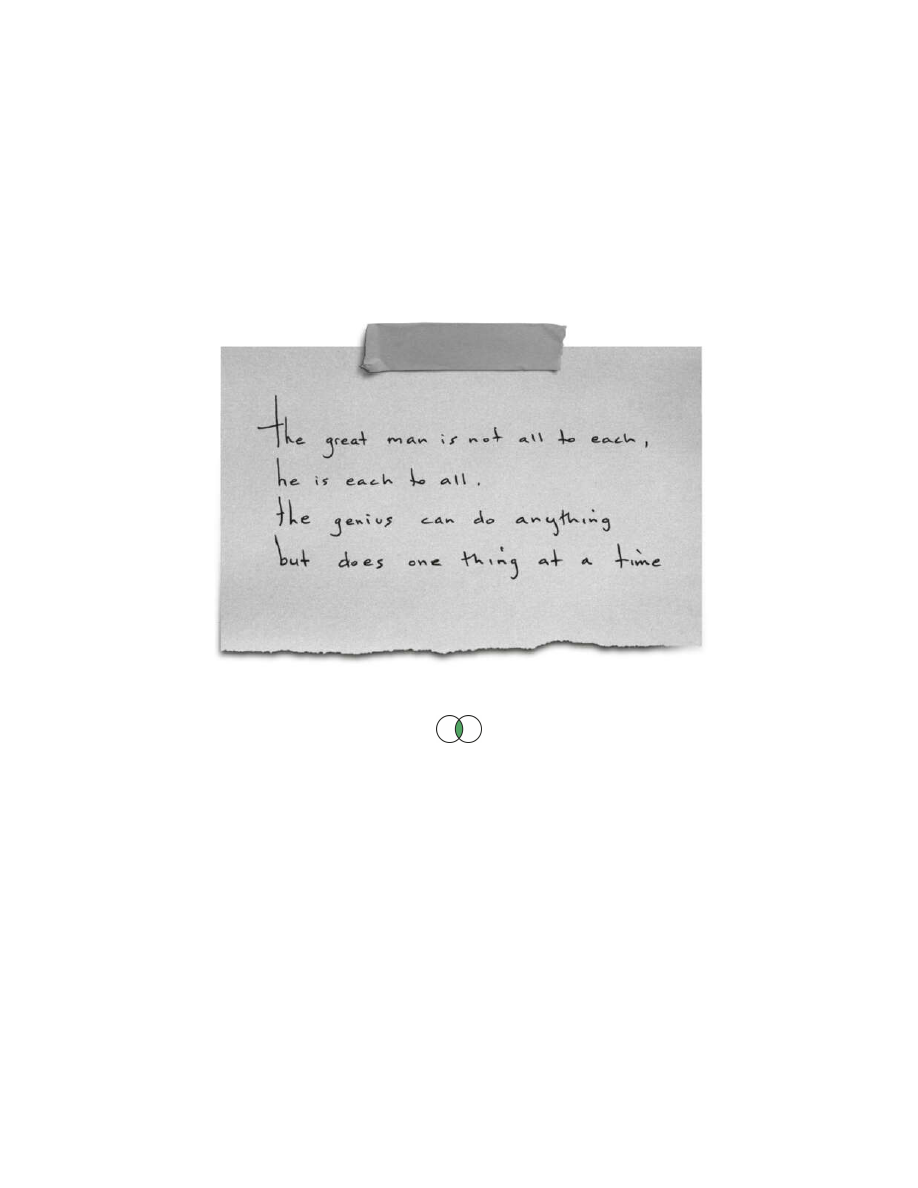 the great man is not all to each,
he is each to all.
the genius can do anything
but does one thing at a time